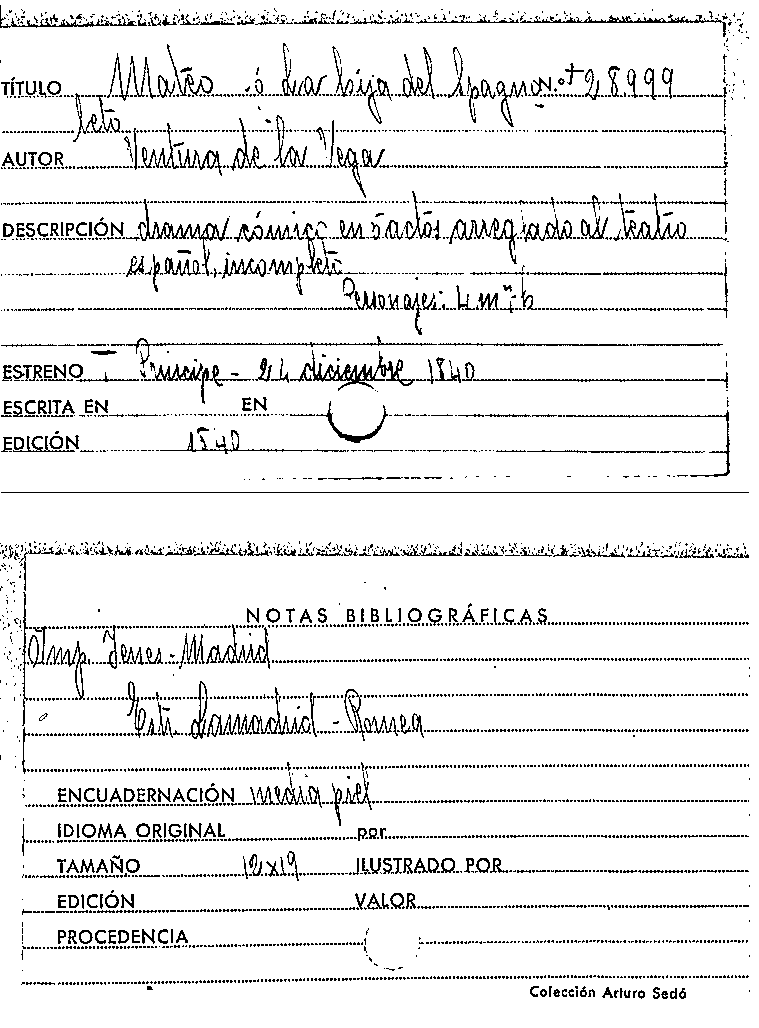 TÍTULO Matéo ó La hija del Spagno N.º + 28999
leto
AUTOR Ventura de la Vega
DESCRIPCIÓN drama cómico en 5 actos arreglado al teatro
español, incompleto
Personajes: 4 m - 6
ESTRENO T. Principe - 24 diciembre 1840
ESCRITA EN EN
EDICIÓN 1840
NOTAS BIBLIOGRÁFICAS
Imp. Yenes - Madrid
Estr. Lamadrid - Romea
ENCUADERNACIÓN media piel
IDIOMA ORIGINAL por
TAMAÑO 12x19 ILUSTRADO POR
EDICIÓN VALOR
PROCEDENCIA
Colección Arturo Sedó